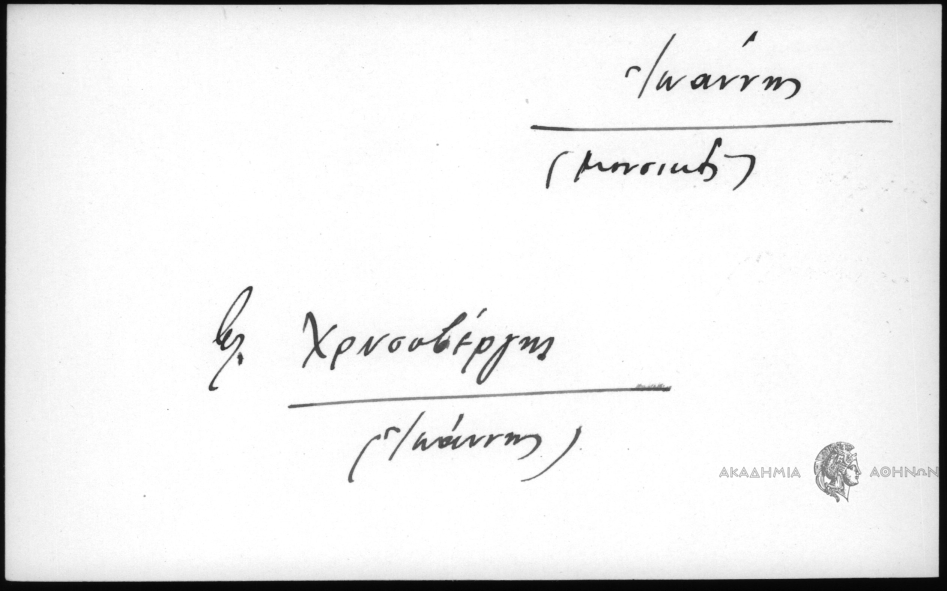 Ἰωάννης
(μουσικός)
βλ. Χρυσοβέργης
(Ἰωάννης)
ΑΚΑΔΗΜΙΑ ΑΘΗΝΩΝ